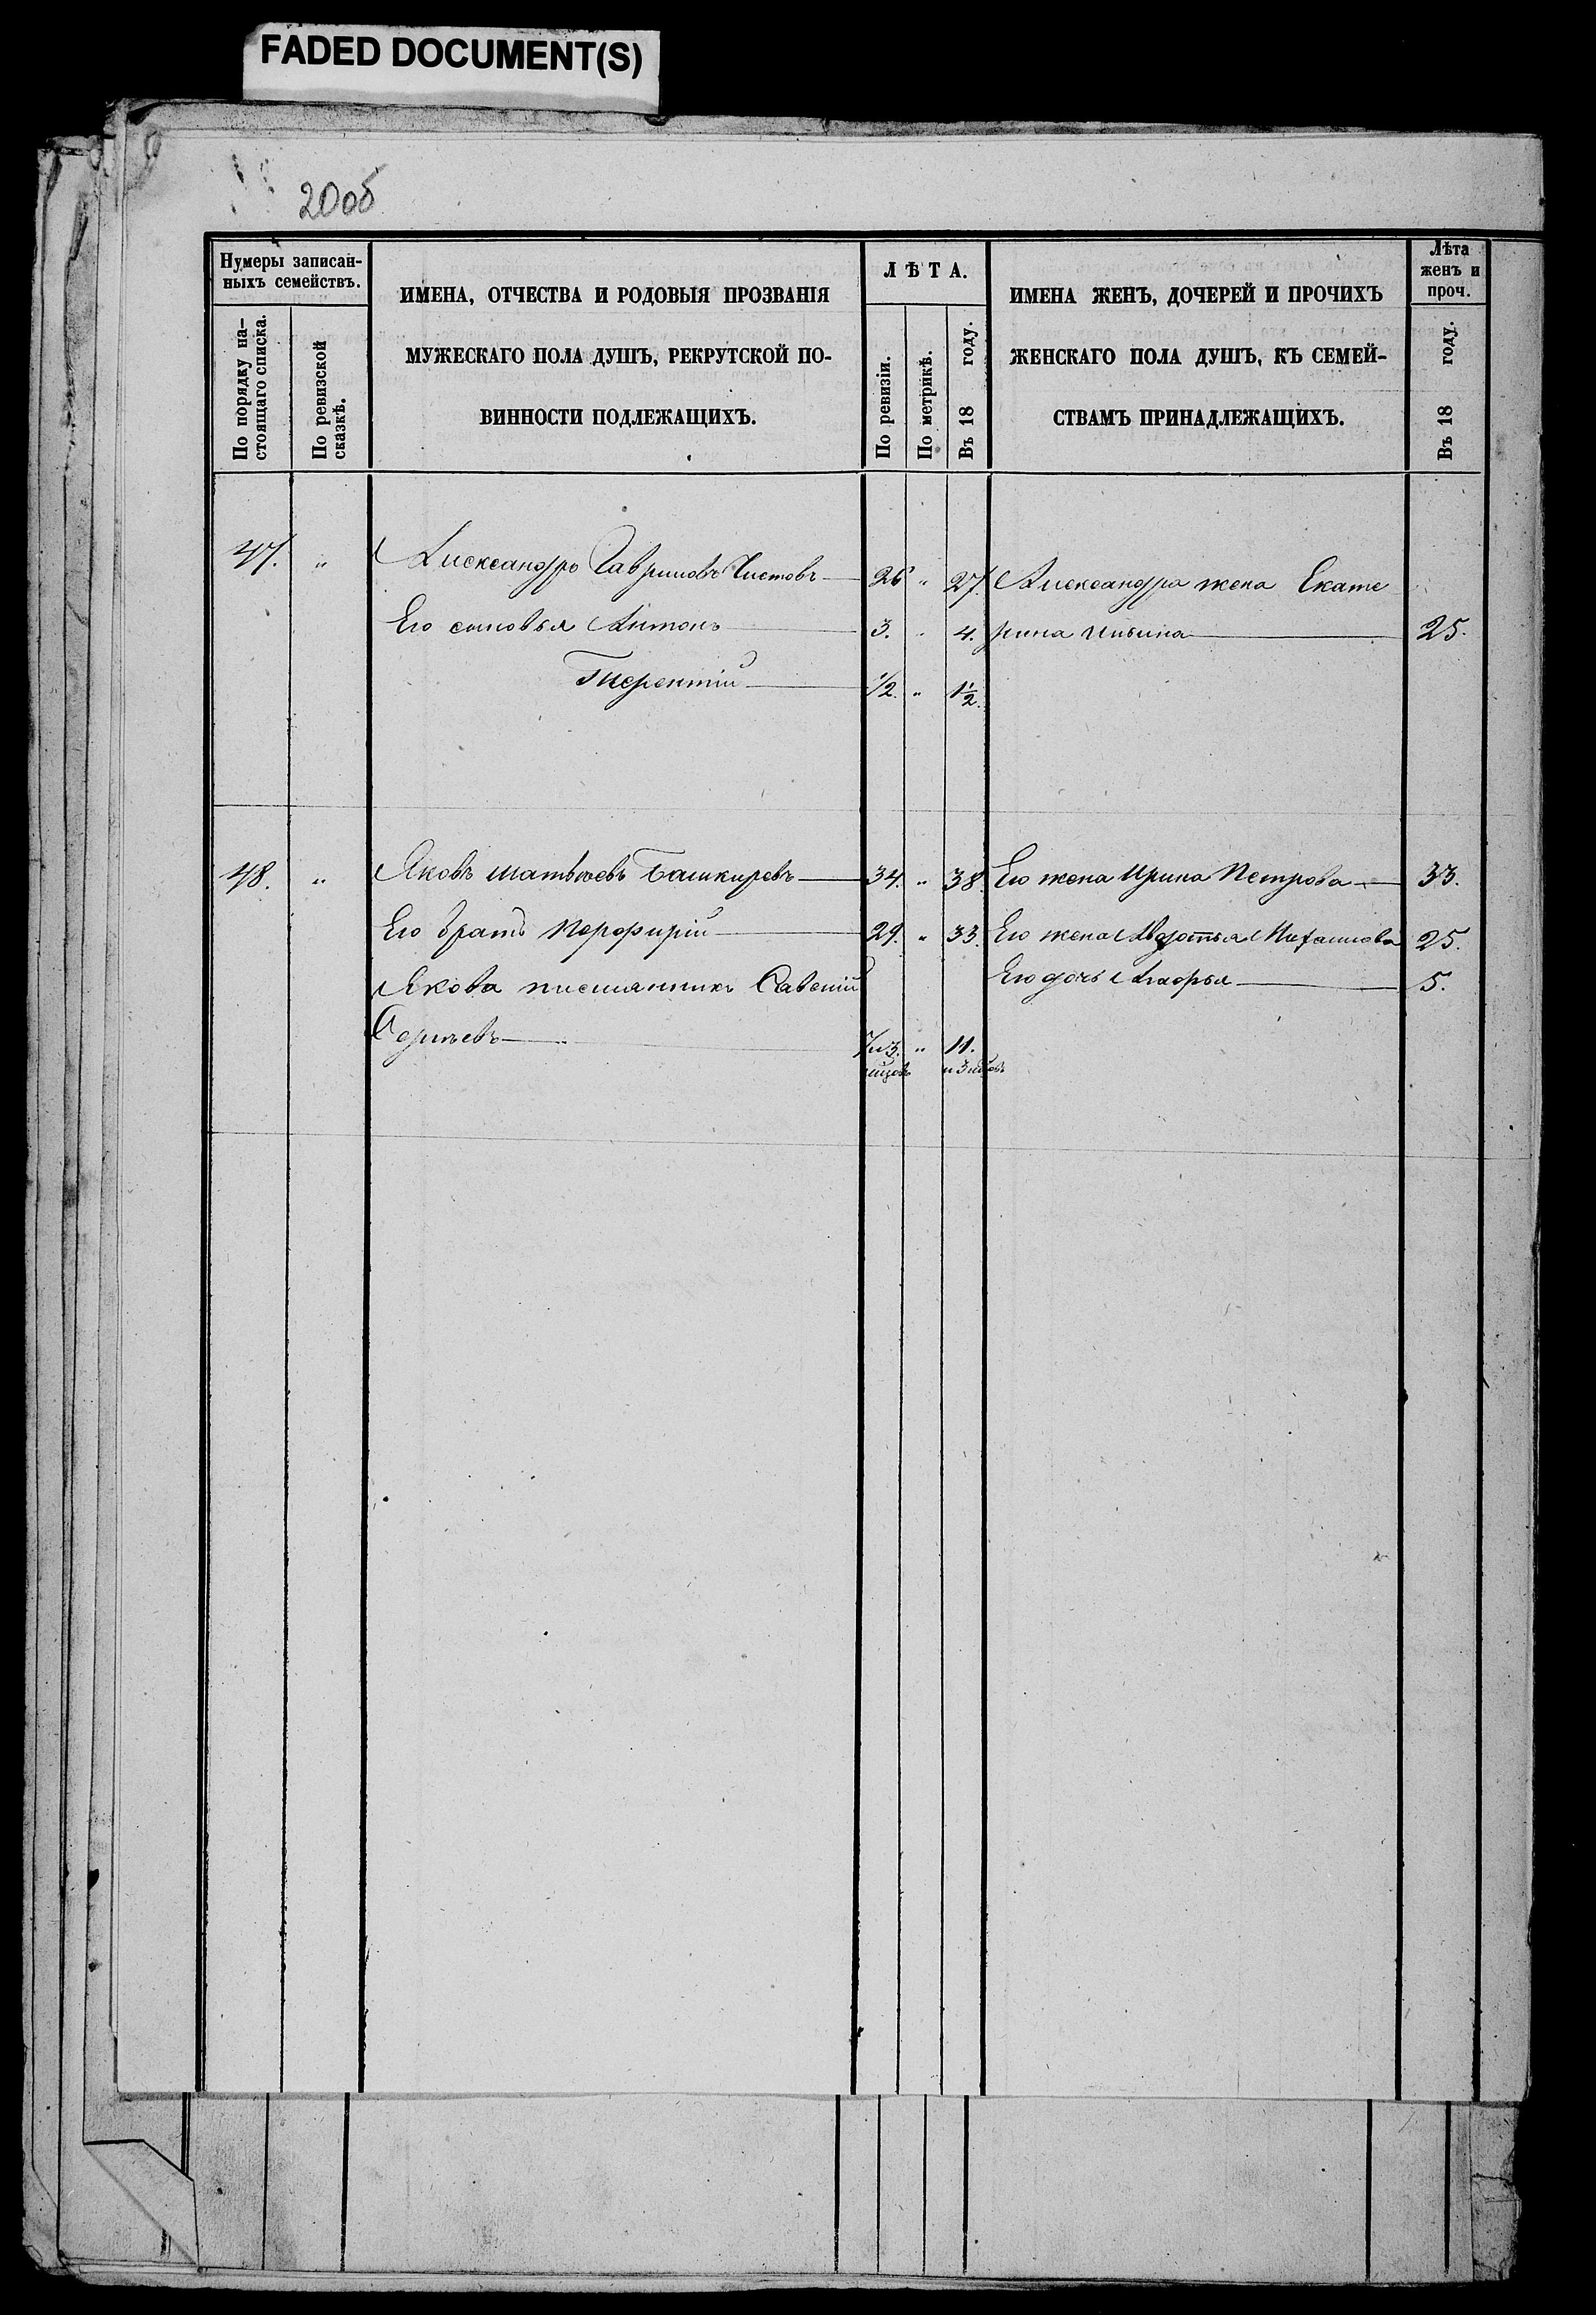 FADED DOCUMENT(S)
20об
Нумеры записан-
ныхъ семействъ.
По порядку на-
стоящаго списка.
По ревизской
сказкѣ.
ИМЕНА, ОТЧЕСТВА И РОДОВЫЯ ПРОЗВАНІЯ
МУЖЕСКАГО ПОЛА ДУШЪ, РЕКРУТСКОЙ ПО-
ВИННОСТИ ПОДЛЕЖАЩИХЪ.
ЛѢТА.
По ревизіи.
По метрикѣ.
Въ 18 году.
ИМЕНА ЖЕНЪ, ДОЧЕРЕЙ И ПРОЧИХЪ
ЖЕНСКАГО ПОЛА ДУШЪ, КЪ СЕМЕЙ-
СТВАМЪ ПРИНАДЛЕЖАЩИХЪ.
Лѣта
женъ и
проч.
Въ 18 году.
47. " Александръ Гавриловъ Чистовъ 26 " 27. Александра жена Екате
Его сыновья Антонъ 3. " 4. рина Ильина 25.
Терентій 1/2. " 1 1/2.
48. " Яковъ Матвѣевъ Башкиревъ 34. " 38. Его жена Ирина Петрова 33.
Его братъ Порфирій 29. " 33. Его жена Авдотья Михайлова 25.
Якова племянникъ Савелій Его дочь Марья 5.
Сергѣевъ 7 и 3. " 11.
мѣсяцовъ и 3 мѣсяцовъ